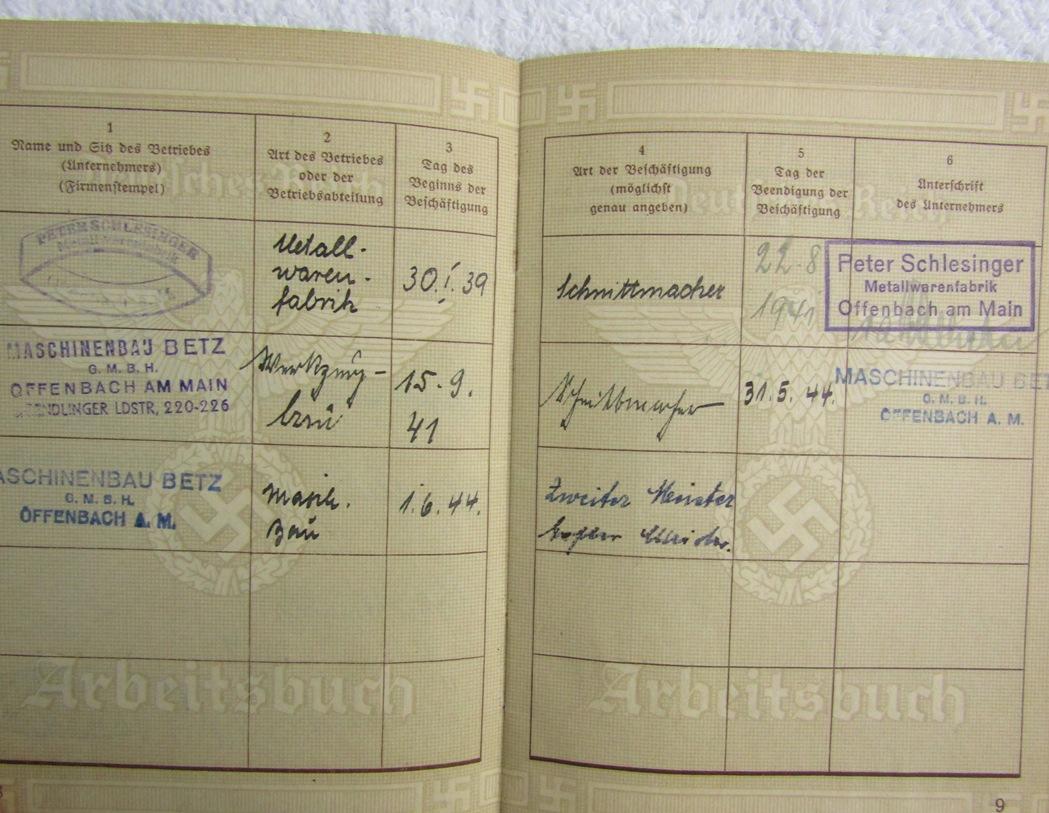 1
Name und Sitz des Betriebes
(Unternehmers)
(Firmenstempel)
2
Art des Betriebes
oder der
Betriebsabteilung
3
Tag des
Beginns der
Beschäftigung
PETER SCHLESINGER
Metallwarenfabrik
Metall-
waren-
fabrik
30.I.39
MASCHINENBAU BETZ
G. M. B. H.
OFFENBACH AM MAIN
LDSTR, 220-226
Werkzeug-
bau
15.9.
41
ASCHINENBAU BETZ
G. M. B. H.
OFFENBACH A. M.
Masch.
Bau
1.6.44.
Arbeitsbuch
4
Art der Beschäftigung
(möglichst
genau angeben)
5
Tag der
Beendigung der
Beschäftigung
6
Unterschrift
des Unternehmers
Deutsches Reich
Schnittmacher
22.8
1941
Peter Schlesinger
Metallwarenfabrik
Offenbach am Main
Schnittmacher
31.5.44.
MASCHINENBAU BET
G. M. B. H.
OFFENBACH A. M.
Zweiter Meister
Arbeitsbuch
9